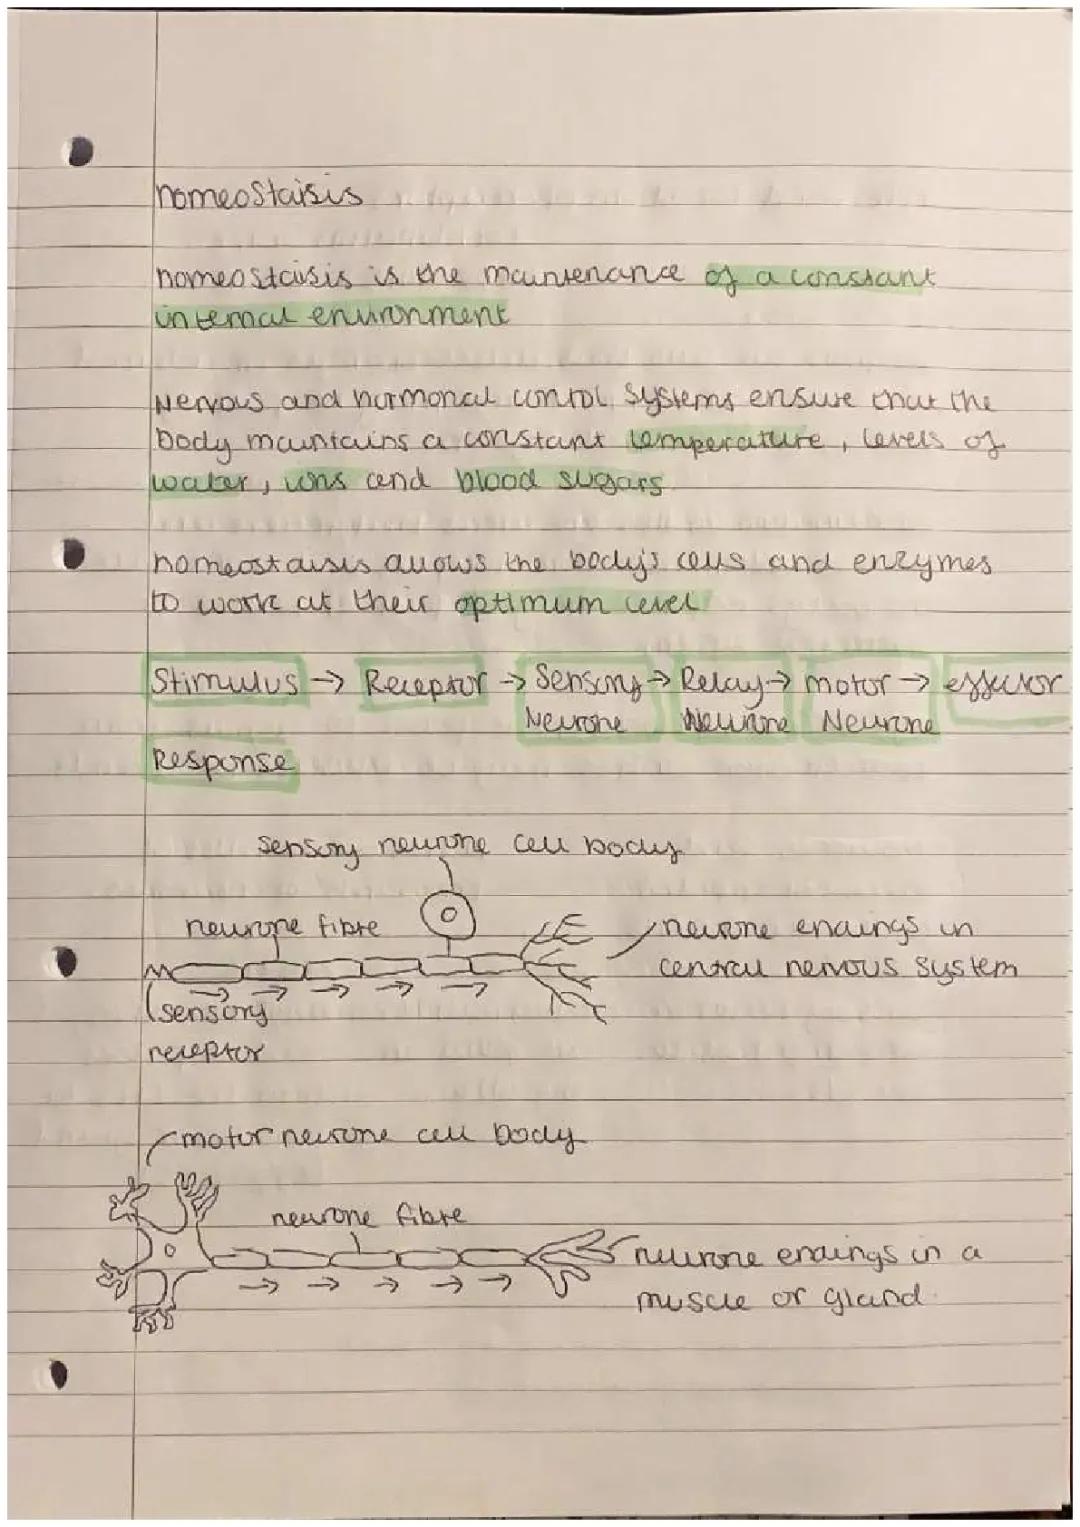 homeostaisis
homeostaisis is the maintenance of a constant
internal environment
Nervous and hormonal control systems ensure that the
body maintains a constant temperature, levels of
water, ions and blood sugars
homeostaisis allows the body's cells and enzymes
to work at their optimum level
Stimulus → Receptor → Sensory → Relay → motor → effector
Neurone Neurone Neurone
Response
sensory neurone cell body
neurone fibre
neurone endings in
central nervous system
sensory
receptor
motor neurone cell body
neurone fibre
neurone endings in a
muscle or gland.